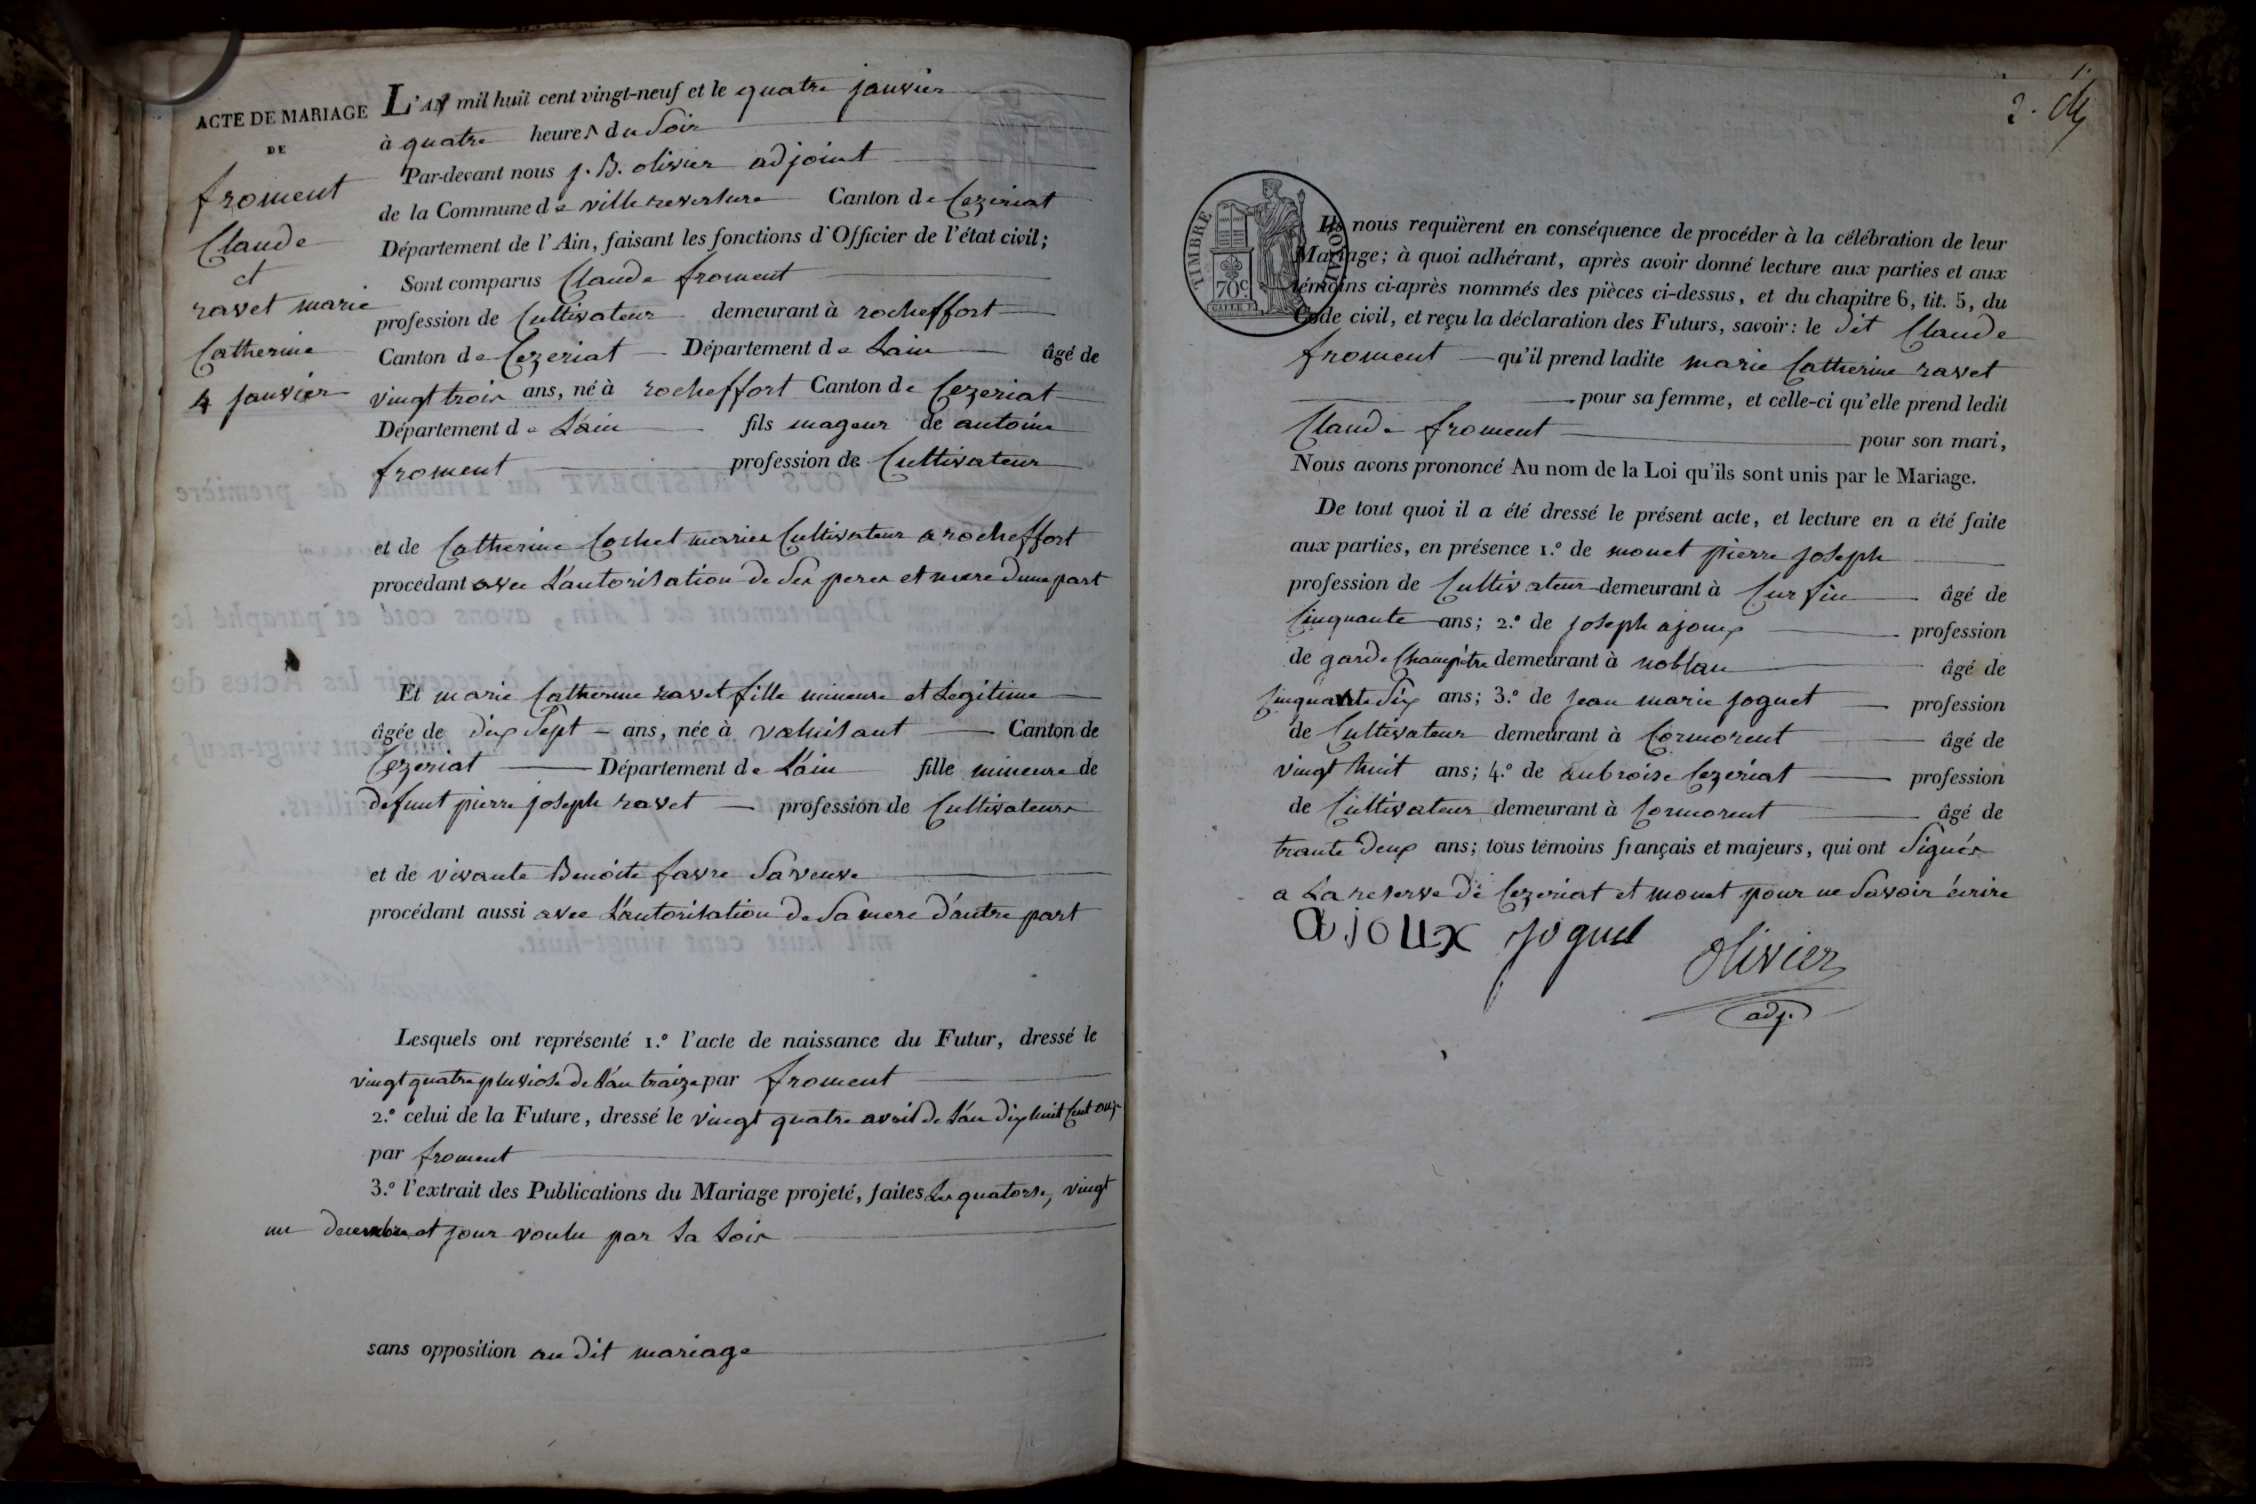 ACTE DE MARIAGE
DE
froment
Claude
et
ravet marie
Catherine
4 janvier
L'AN mil huit cent vingt-neuf et le quatre janvier
à quatre heures du Soir
Par-devant nous j. B. olivier adjoint
de la Commune de villereversure Canton de Cezeriat
Département de l'Ain, faisant les fonctions d'Officier de l'état civil;
Sont comparus Claude froment
profession de Cultivateur demeurant à rocheffort
Canton de Cezeriat Département de Lain âgé de
vingt trois ans, né à rocheffort Canton de Cezeriat
Département de L'ain fils mageur de antoine
froment profession de Cultivateur
et de Catherine Cochet mariés Cultivateur a rocheffort
procédant avec L'autorisation de Ses peres et mere dune part
Et marie Catherine ravet fille mineure et Legitime
âgée de dix Sept ans, née à valuisant Canton de
Cezeriat Département de L'ain fille mineure de
defunt pierre joseph ravet profession de Cultivateurs
et de vivante Benoite favre Sa veuve
procédant aussi avec L'autorisation de Sa mere d'autre part
Lesquels ont représenté 1.º l'acte de naissance du Futur, dressé le
vingt quatre pluviose de L'an traize par froment
2.º celui de la Future, dressé le vingt quatre avril de L'an dix huit Cent onze
par froment
3.º l'extrait des Publications du Mariage projeté, faites Les quatorse, vingt
un decembre et jour voulu par La Lois
sans opposition au dit mariage
2.
TIMBRE ROYAL
70c
Ils nous requièrent en conséquence de procéder à la célébration de leur
Mariage; à quoi adhérant, après avoir donné lecture aux parties et aux
témoins ci-après nommés des pièces ci-dessus, et du chapitre 6, tit. 5, du
Code civil, et reçu la déclaration des Futurs, savoir: le dit Claude
froment qu'il prend ladite marie Catherine ravet
pour sa femme, et celle-ci qu'elle prend ledit
Claude froment pour son mari,
Nous avons prononcé Au nom de la Loi qu'ils sont unis par le Mariage.
De tout quoi il a été dressé le présent acte, et lecture en a été faite
aux parties, en présence 1.º de monet pierre joseph
profession de Cultivateur demeurant à Curfin âgé de
Cinquante ans; 2.º de joseph ajoux profession
de garde Champêtre demeurant à noblan âgé de
Cinquante Six ans; 3.º de jean marie joguet profession
de Cultivateur demeurant à Cormorent âgé de
vingt huit ans; 4.º de anbroise Cezeriat profession
de Cultivateur demeurant à Cormorent âgé de
trante deux ans; tous témoins français et majeurs, qui ont Signés
a La reserve de Cezeriat et monet pour ne Savoir écrire
ajoux joguet
olivier
adj.